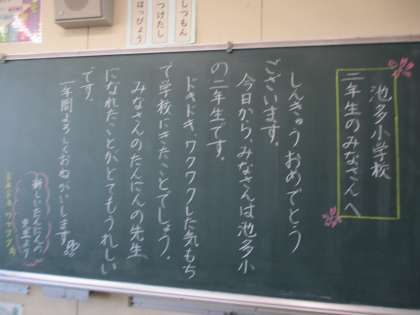 しつもん
つけたし
はっぴょう
池多小学校
二年生のみなさんへ
しんきゅうおめでとう
ございます。
今日から、みなさんは池多小
の二年生です。
ドキドキ、ワクワクした気もち
で学校にきたことでしょう。
みなさんのたんにんの先生
になれたことがとてもうれしい
です。
一年間よろしくおねがいします。
新しいたんにんの
先生より
ドキドキワクワク